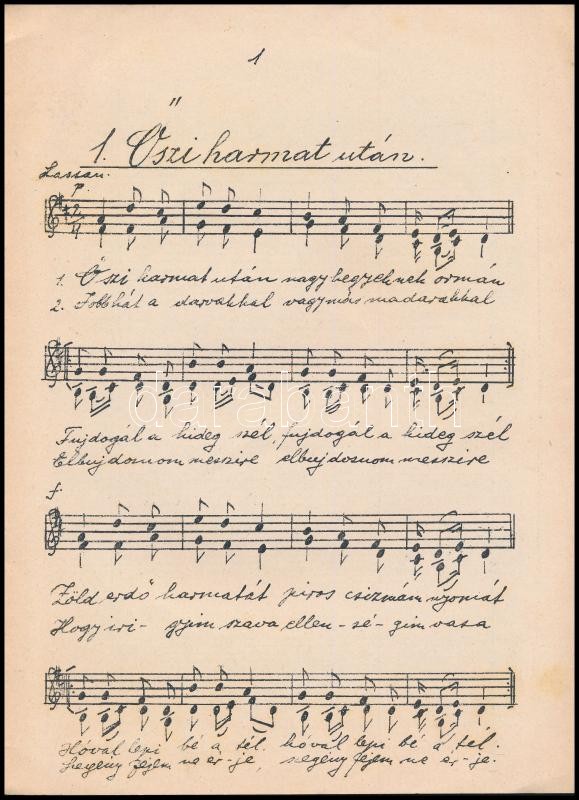 1
1. Őszi harmat után.
Lassan.
p.
2/4
1. Őszi harmat után nagy hegyeknek ormán
2. Jobb hát a darvakkal vagy más madarakkal
darabanth
Fujdogál a hideg szél, fujdogál a hideg szél
Elbujdosnom messzire elbujdosnom messzire
f.
Zöld erdő harmatát piros csizmám nyomát
Hogy iri- gyim szava ellen - sé - gim vasa
Hóval lepi bé a tél. hóval lepi bé a tél.
Szegény fejem ne ér-je, szegény fejem ne ér-je.